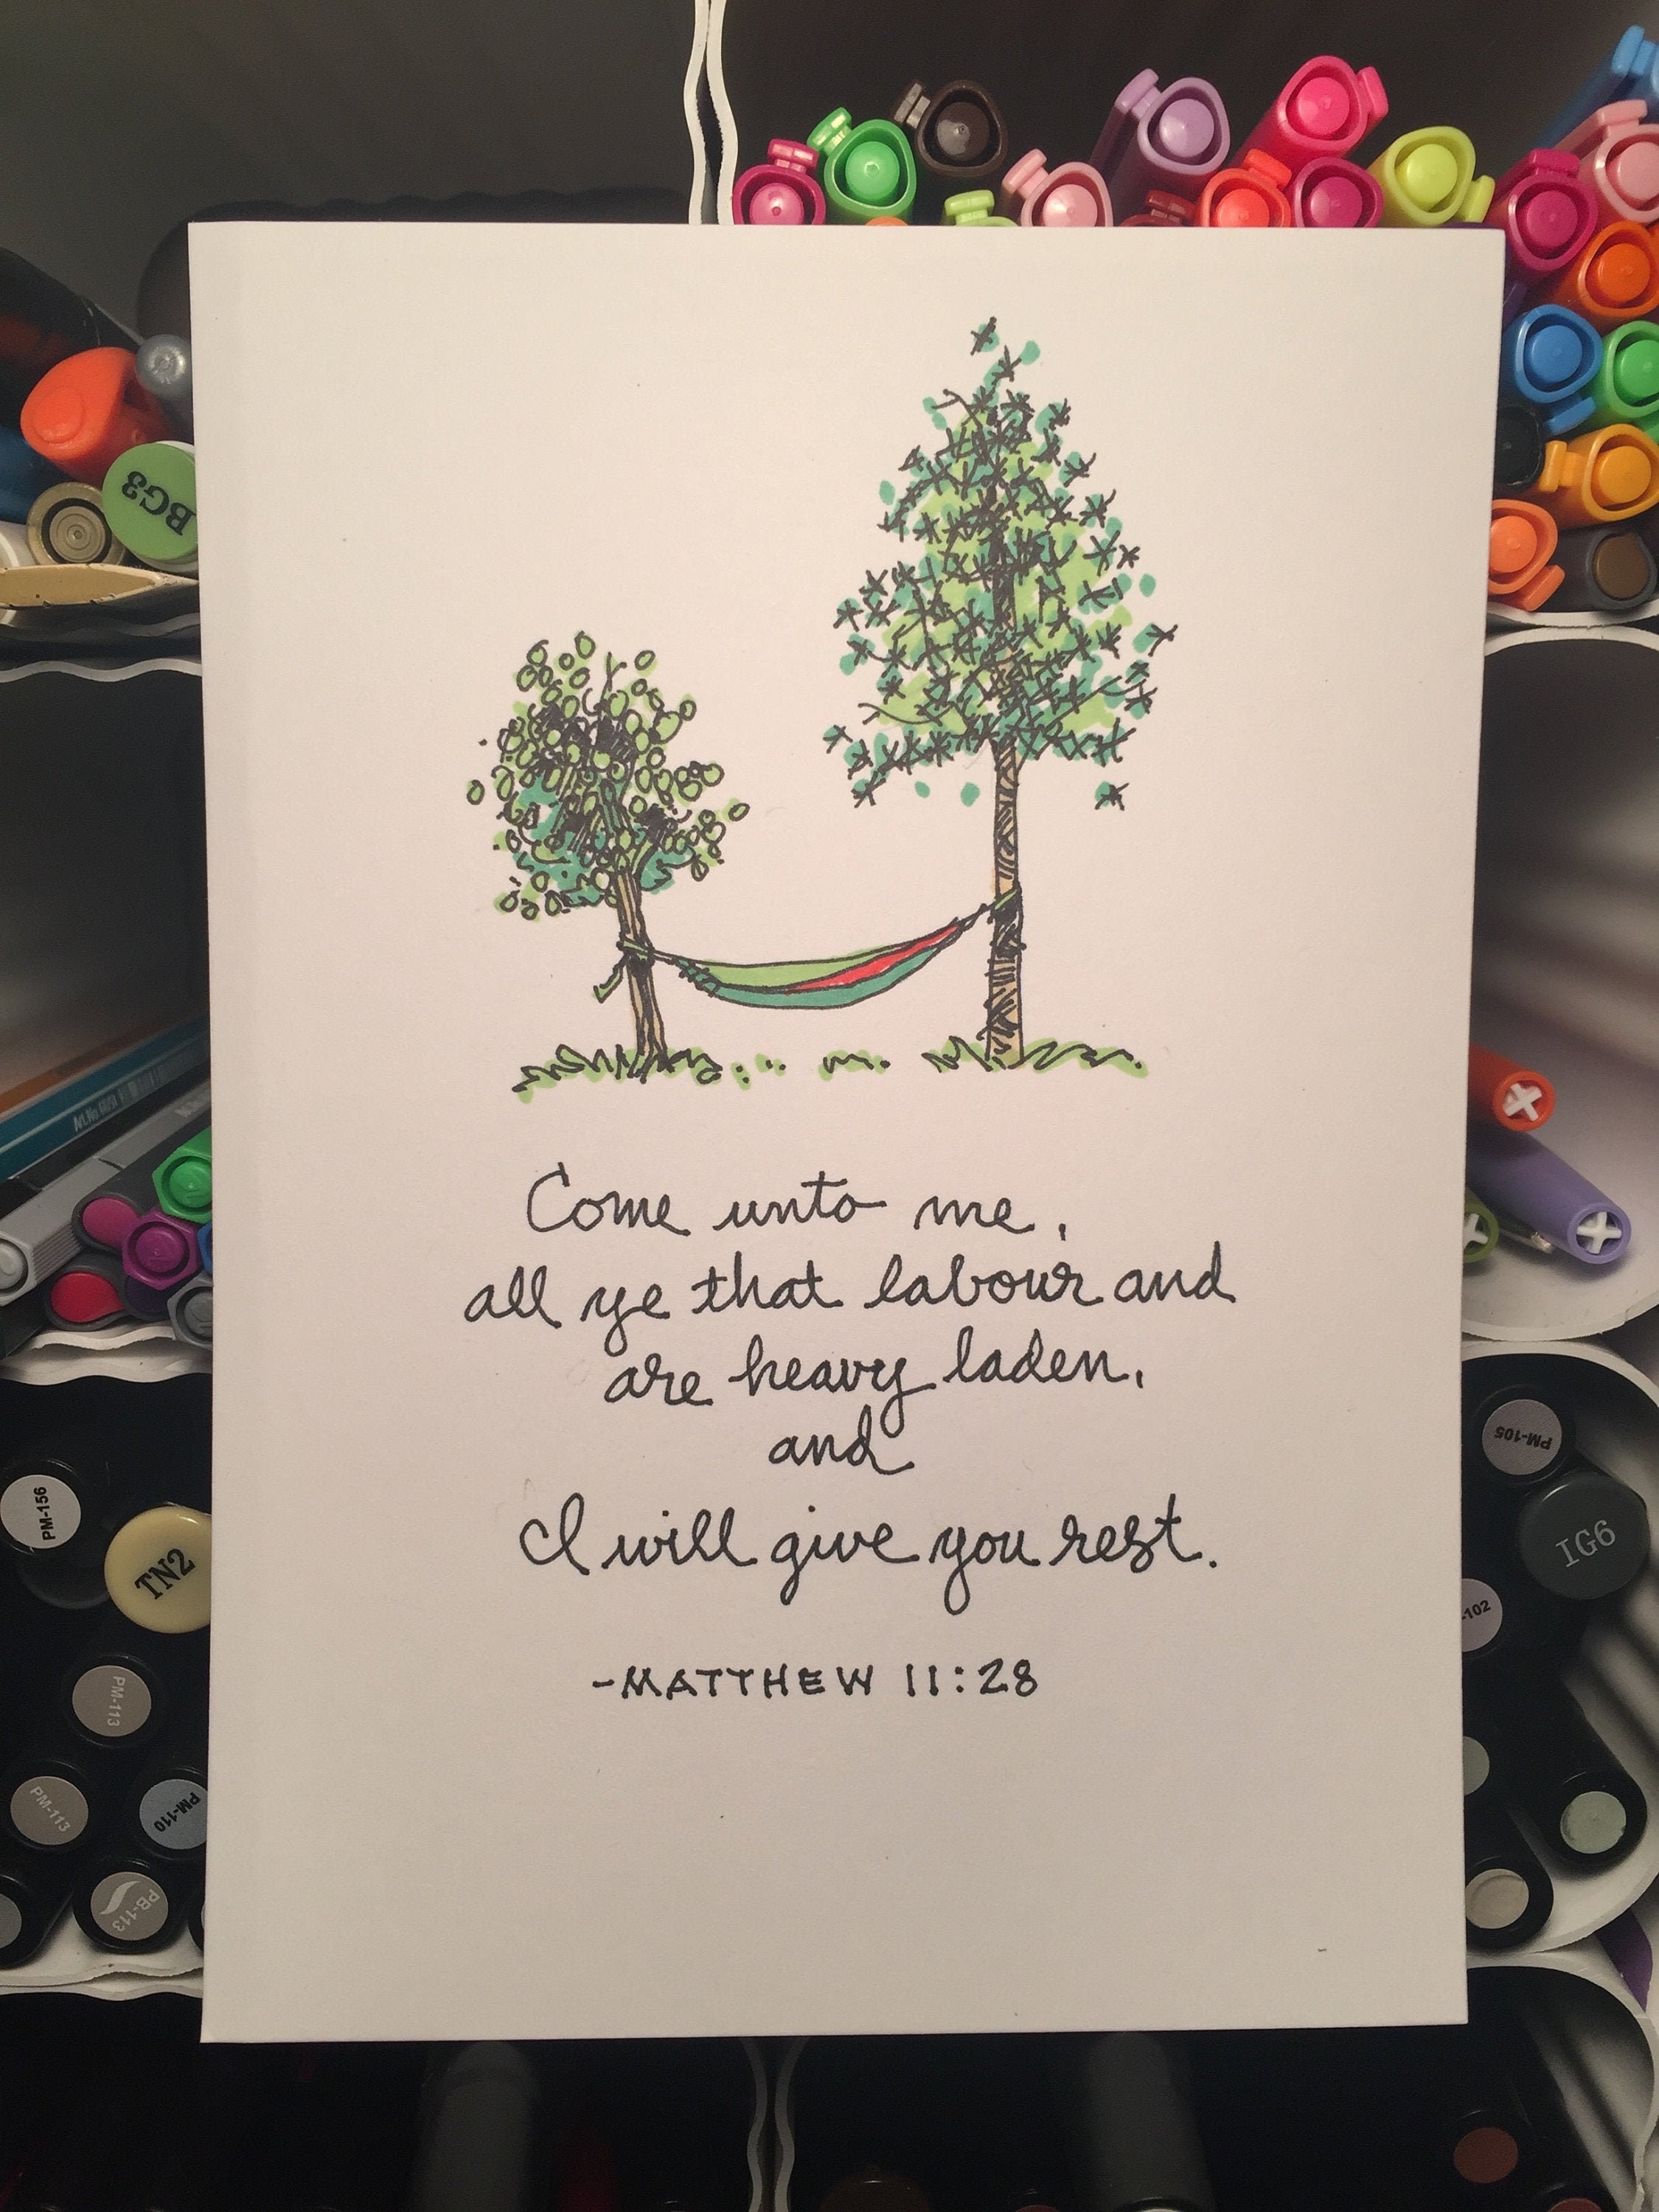 BG3
Art.No.6651
Come unto me,
all ye that labour and
are heavy laden,
and
I will give you rest.
-MATTHEW 11:28
PM-156
TN2
PM-113
PM-113
PM-110
PB-113
PM-105
IG6
-102